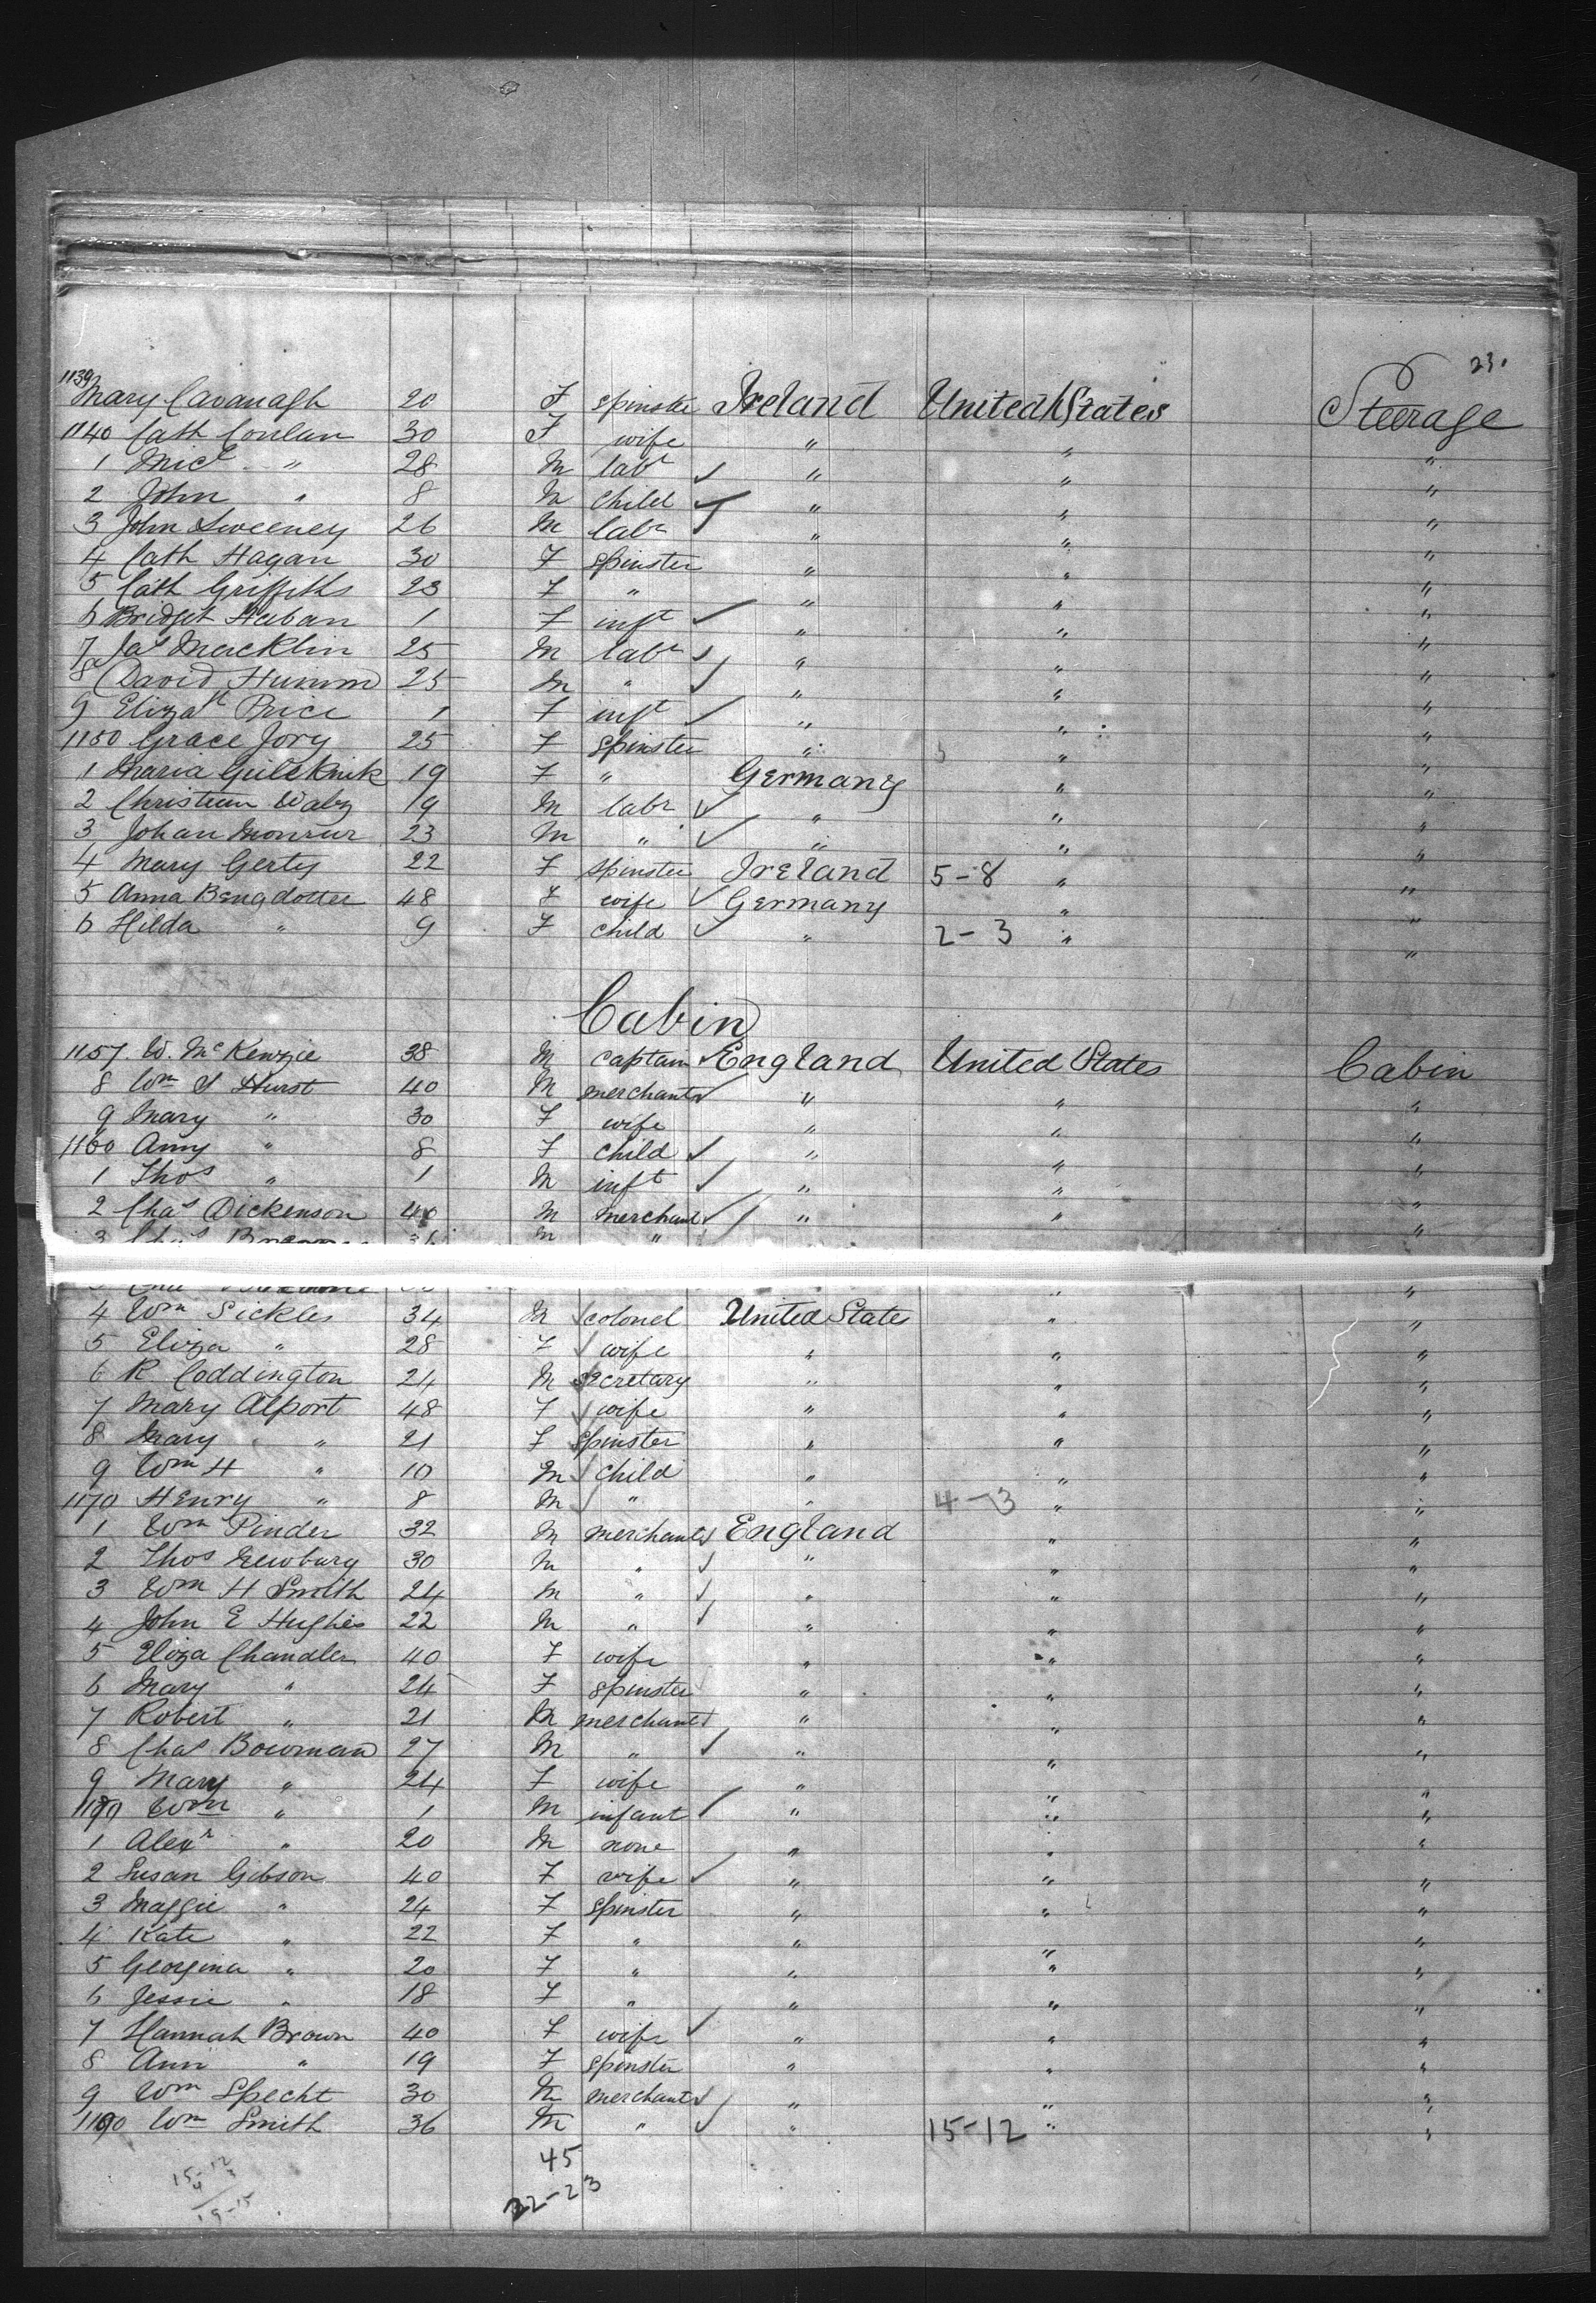 23.
1139 Mary Cavanagh 20 F spinster Ireland United States Steerage
1140 Cath Conlan 30 F wife " " "
1 Micl " 28 M labr " " "
2 John " 8 M child " " "
3 John Sweeney 26 M labr " " "
4 Cath Hagan 30 F spinster " " "
5 Cath Griffiths 23 F " " " "
6 Bridget Haban 1 F inft " " "
7 Jas Macklin 25 M labr " " "
8 David Humm 25 M " " " "
9 Elizath Price 1 F inft " " "
1150 Grace Jory 25 F spinster " " "
1 Maria 19 F " Germany " "
2 Christian Walz 19 M labr " " "
3 Johan 23 M " " " "
4 Mary Gerty 22 F spinster Ireland 5-8 " "
5 Anna Bengdotter 48 F wife Germany " "
6 Hilda " 9 F child " 2-3 " "
Cabin
1157 W. McKenzie 38 M captain England United States Cabin
8 Wm S Hurst 40 M merchant " " "
9 Mary " 30 F wife " " "
1160 Amy " 8 F child " " "
1 Thos " 1 M inft " " "
2 Chas Dickenson 40 M merchant " " "
3 Chas M "
4 Wm Sickles 34 M colonel United State " "
5 Eliza " 28 F wife " " "
6 R Coddington 24 M secretary " " "
7 Mary Alport 48 F wife " " "
8 Mary " 21 F spinster " " "
9 Wm H " 10 M child " " "
1170 Henry " 8 M " " 4-3 " "
1 Wm Pinder 32 M merchant England " "
2 Thos Newbury 30 M " " " "
3 Wm H Smith 24 M " " " "
4 John E Hughes 22 M " " " "
5 Eliza Chandler 40 F wife " " "
6 Mary " 24 F spinster " " "
7 Robert " 21 M merchant " " "
8 Chas Bowman 27 M " " " "
9 Mary " 24 F wife " " "
1180 Wm " 1 M infant " " "
1 Alexr " 20 M none " " "
2 Susan Gibson 40 F wife " " "
3 Maggie " 24 F spinster " " "
4 Kate " 22 F " " " "
5 Georgina " 20 F " " " "
6 Jessie " 18 F " " " "
7 Hannah Brown 40 F wife " " "
8 Ann " 19 F spinster " " "
9 Wm Specht 30 M merchant " " "
1190 Wm Smith 36 M " " 15-12 " "
45
22-23
15-12
4 3
19-15